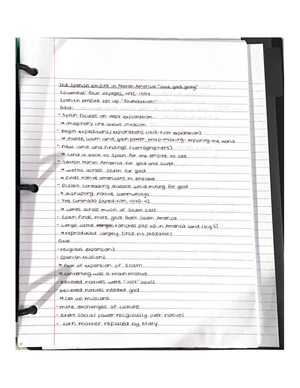 The Spanish Empire in North America "God, gold, glory"
four voyages, 1492, 1504
Spanish empire set up "foundation"
Gold:
- Spain focuses on more exploration
→ imaginary line avoids invasion
- Begin expeditions/expansions (1513: first expansion)
→ invade, claim land, gain power, map making: exploring the world
- new land and findings (cartographers)
→ send it back to Spain for the empire to see
- Search North America for gold and silver
→ works across south for gold
→ finds native americans to enslave
- Disease spreading disease while mining for gold
→ disrupting native communities
- The Coronado Expedition, 1540-42
→ covers across much of South East
- Spain finds more gold from South America
- Large cattle ranches pop up in America land (big 5)
→ reproduced largely since no predators
God:
religious expansion!
- Spanish Muslims
→ fear of expansion of Islam
→ converting was a main motive
- believed natives were "lost" souls
- believed natives needed god
→ set up missions
- more exchanges of culture
- exert social power religiously over natives
- corn mother replaced by Mary